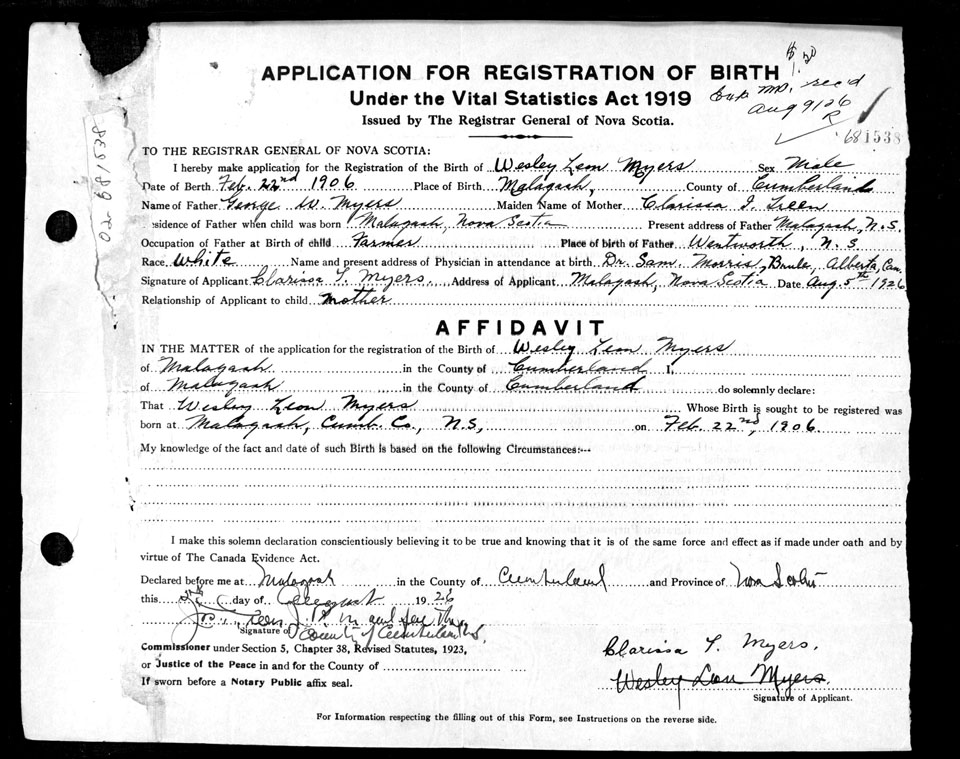 $1.50
APPLICATION FOR REGISTRATION OF BIRTH
Under the Vital Statistics Act 1919
rec'd
Aug 9/26
R
Issued by The Registrar General of Nova Scotia.
681538
TO THE REGISTRAR GENERAL OF NOVA SCOTIA:
I hereby make application for the Registration of the Birth of Wesley Leon Myers Sex Male
Date of Berth Feb. 22nd 1906 Place of Birth Malagash, County of Cumberland
Name of Father George W. Myers Maiden Name of Mother Clarissa J. Treen
esidence of Father when child was born Malagash, Nova Scotia Present address of Father Malagash, N.S.
Occupation of Father at Birth of child Farmer Place of birth of Father Wentworth, N.S
Race White Name and present address of Physician in attendance at birth Dr. Sam. Morris, Brule, Alberta, Can.
Signature of Applicant Clarissa T. Myers. Address of Applicant Malagash, Nova Scotia Date Aug. 5th 1926
Relationship of Applicant to child mother
AFFIDAVIT
IN THE MATTER of the application for the registration of the Birth of Wesley Leon Myers
of Malagash in the County of Cumberland I,
of Malagash in the County of Cumberland do solemnly declare:
That Wesley Leon Myers Whose Birth is sought to be registered was
born at Malagash, Cumb. Co., N.S, on Feb. 22nd, 1906.
My knowledge of the fact and date of such Birth is based on the following Circumstances:--
I make this solemn declaration conscientiously believing it to be true and knowing that it is of the same force and effect as if made under oath and by
virtue of The Canada Evidence Act.
Declared before me at Malagash in the County of Cumberland and Province of Nova Scotia
this day of August 1926
J. C. Treen J.P. in and for the
Signature of County of Cumberland N.S.
Commissioner under Section 5, Chapter 38, Revised Statutes, 1923,
or Justice of the Peace in and for the County of
If sworn before a Notary Public affix seal.
Clarissa T. Myers.
Wesley Leon Myers.
Signature of Applicant.
For Information respecting the filling out of this Form, see Instructions on the reverse side.